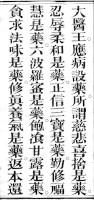 大醫王應病設藥所謂慈悲喜捨是藥
忍辱柔和是藥正信三寶是藥勤修福
慧是藥六波羅蜜是藥飽湌甘露是藥
貪求法味是藥修眞養氣是藥返本還